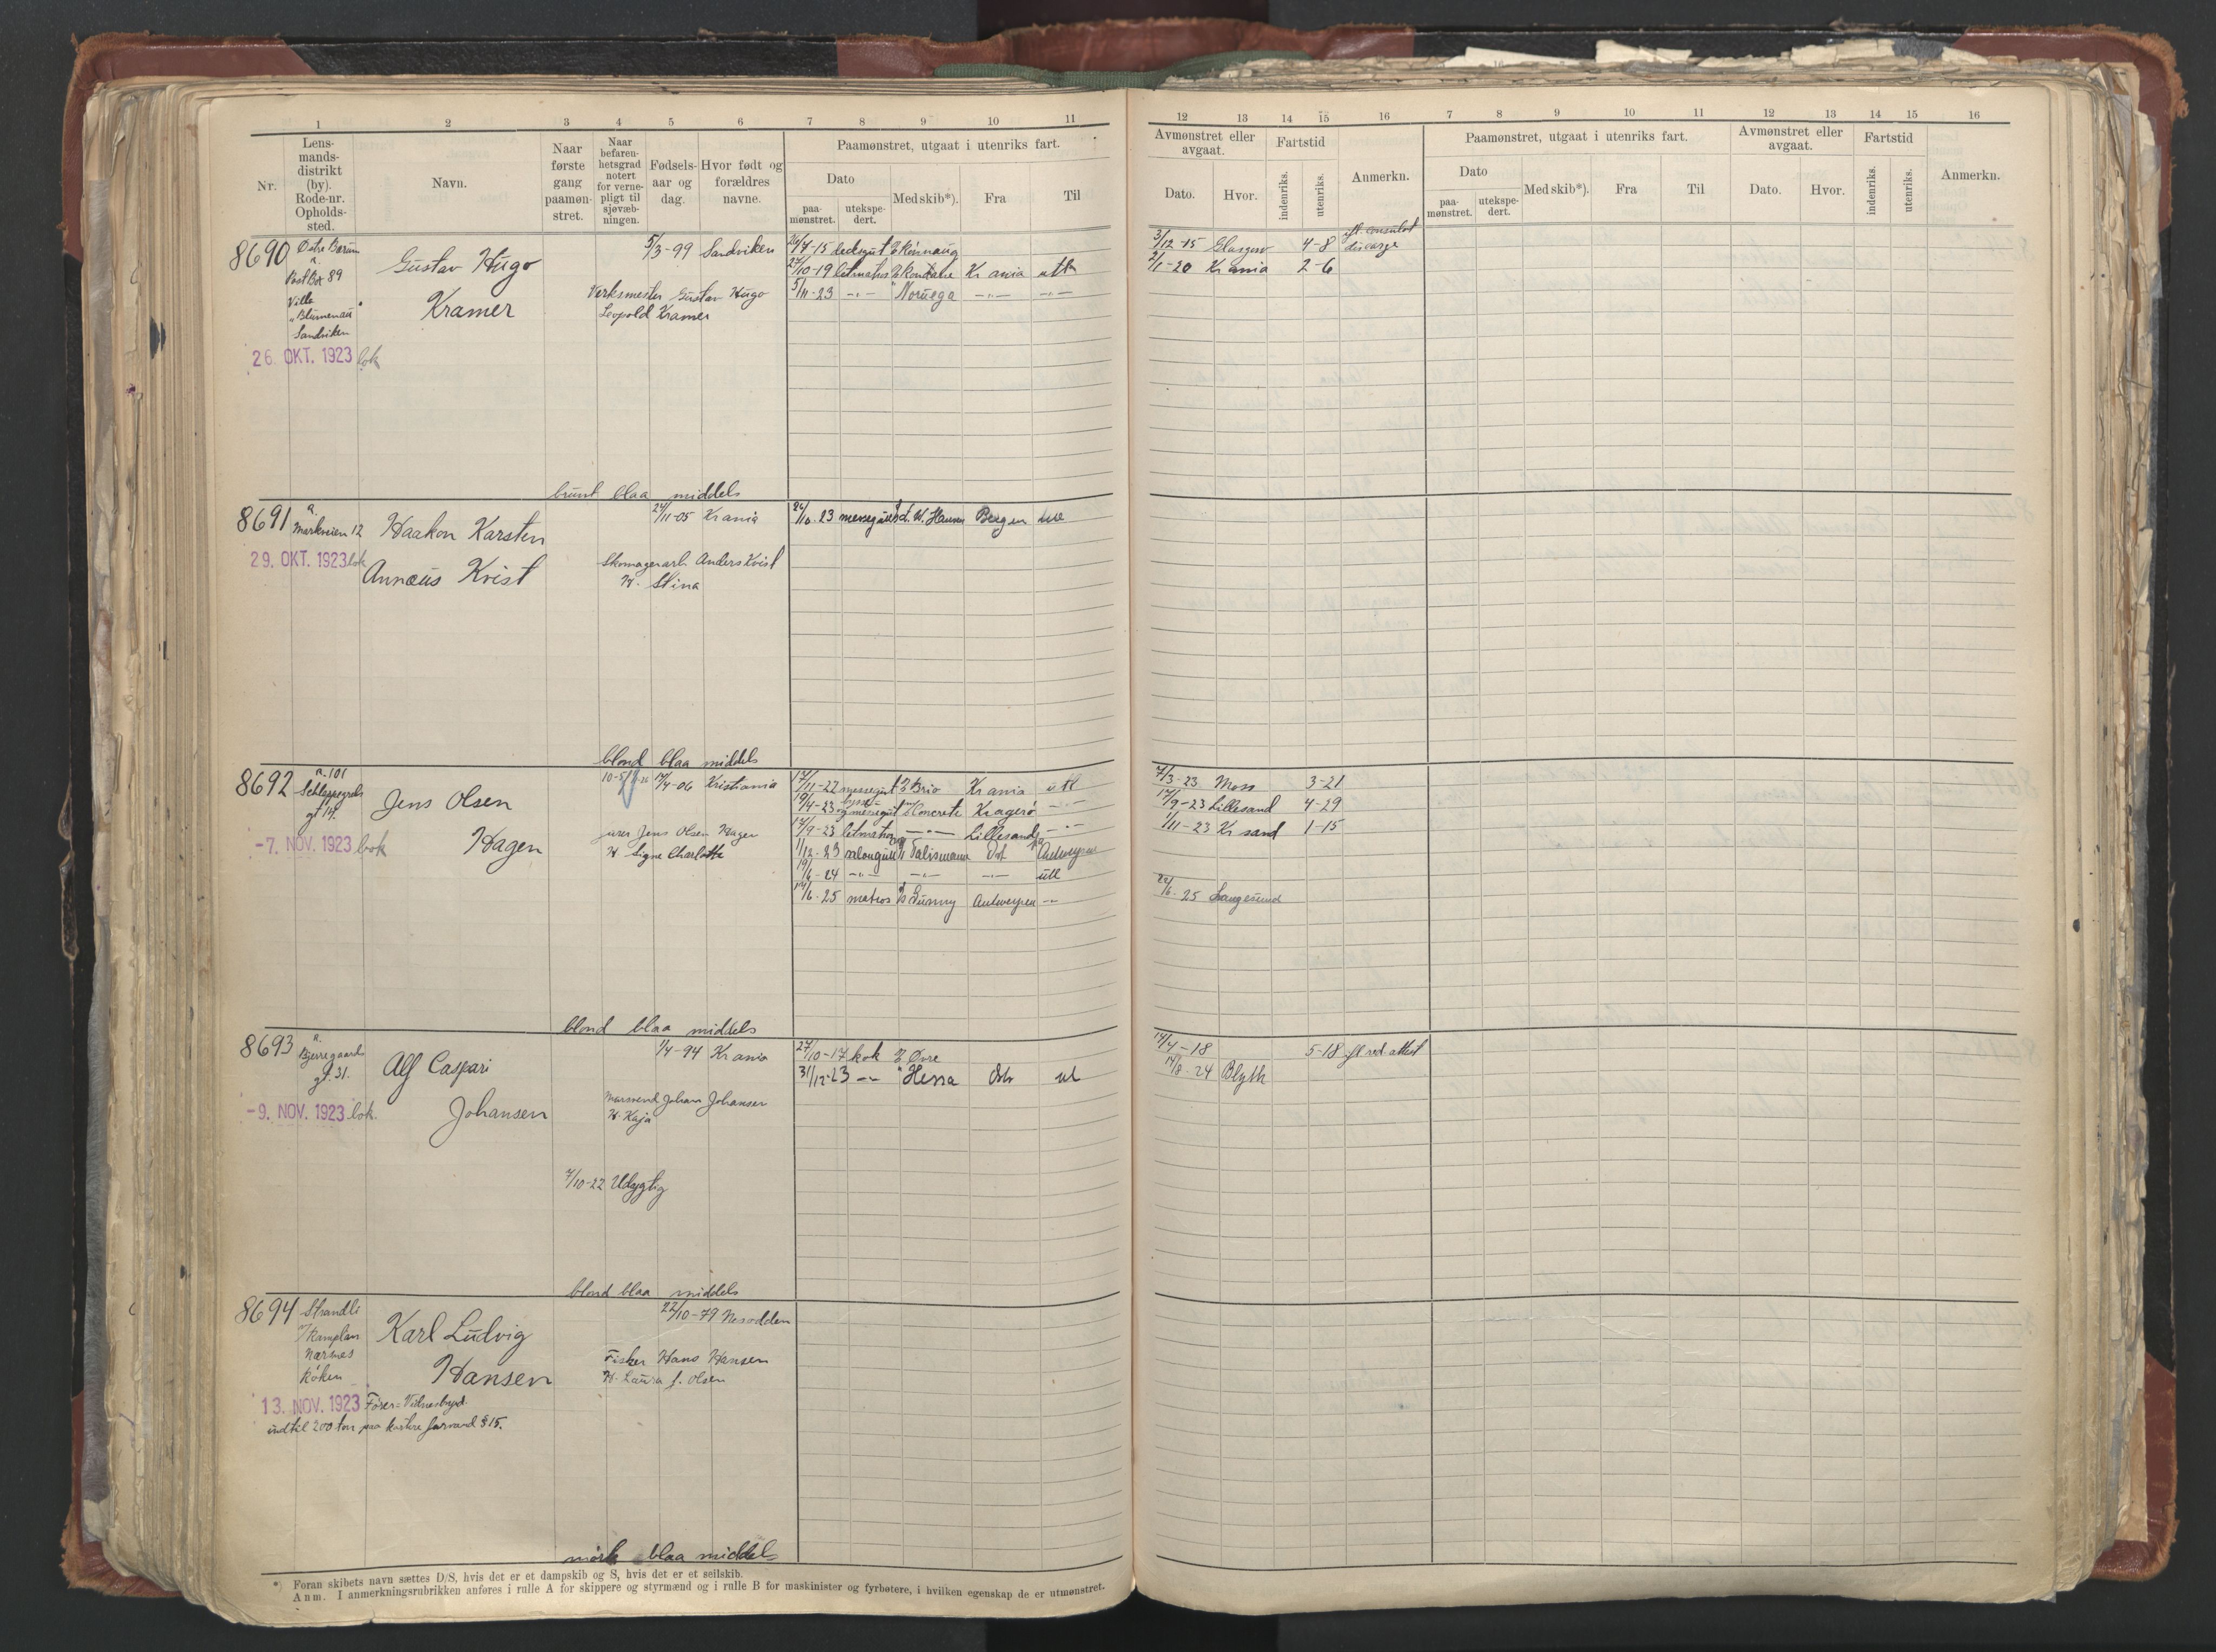 1 2 3 4 5 6 7 8 9 10 11
Nr.
Lens-
mands-
distrikt
(by).
Rode-nr.
Opholds-
sted.
Navn.
Naar
første
gang
paamøn-
stret.
Naar
befaren-
hetsgrad
notert
for verne-
pligt til
sjøvæb-
ningen.
Fødsels-
aar og
dag.
Hvor født og
forældres
navne.
Paamønstret, utgaat i utenriks fart.
Dato
paa-
mønstret.
utekspe-
dert.
Med skib*).
Fra
Til
8690 Østre Bærum
Post Box 89
Villa
"Blumenau"
Sandviken
26. OKT. 1923 bok
Gustav Hugo
Kramer
5/3-99 Sandviken
Verksmester Gustav Hugo
Leopold Kramer
26/7-15 deksgut Rönnaug
27/10-19 letmatros Rondane Kr ania utl
5/11-23 -"- " Noruega -"- -"-
brunt blaa middels
8691 Markveien 12
29. OKT. 1923 bok
Haakon Karsten
Annæus Kvist
24/11-05 Krania
Skomagerarb. Anders Kvist
H. Stina
26/10-23 messegut W. Hansen Bergen utl
blond blaa middels
8692 a. 101
Schleppegrels
gt 14.
-7. NOV. 1923 bok
Jens Olsen
Hagen
17/4-06 Kristiania
Jens Olsen Hagen
H Signe Charlotte
17/11-22 messegut Brio Kr ania utl
19/4-23 og messegut Concrete Kragerö -"-
17/9-23 letmatros -"- Lillesand -"-
1/12-23 salongut Talismann Antwerpen
19/6-24 -"- -"- -"- utl
14/6-25 matros Sunny Antwerpen -"-
blond blaa middels
8693 Bjerregaards
gt. 31.
-9. NOV. 1923 bok.
Alf Caspari
Johansen
1/4-94 Kr ania
Johan Johansen
H. Kaja
7/10-22 Udygtig
27/10-17 kok Övre
31/12-23 -"- " Hessa Oslo utl
blond blaa middels
8694 Strandli
Nærsnes
Röken
13. NOV. 1923
Karl Ludvig
Hansen
22/10-79 Nesodden
Fisker Hans Hansen
H. Laura f. Olsen
Förer-Vidnesbyrd
indtil 200 ton paa kortere farvand § 15.
mörk blaa middels
*) Foran skibets navn sættes D/S, hvis det er et dampskib og S, hvis det er et seilskib.
Anm. I anmerkningsrubrikken anføres i rulle A for skippere og styrmænd og i rulle B for maskinister og fyrbøtere, i hvilken egenskap de er utmønstret.
12 13 14 15 16 7 8 9 10 11 12 13 14 15 16
Avmønstret eller
avgaat.
Dato.
Hvor.
Fartstid
indenriks.
utenriks.
Anmerkn.
Paamønstret, utgaat i utenriks fart.
Dato
paa-
mønstret.
utekspe-
dert.
Med skib*).
Fra
Til
Avmønstret eller
avgaat.
Dato.
Hvor.
Fartstid
indenriks.
utenriks.
Anmerkn.
3/12-15 Glasgow 4-8 consulat
2/1-20 Kr ania 2-6
7/3-23 Moss 3-21
17/9-23 Lillesand 4-29
1/11-23 Kr sand 1-15
22/6-25 Langesund
14/4-18 5-18 attest
14/8-24 Blyth